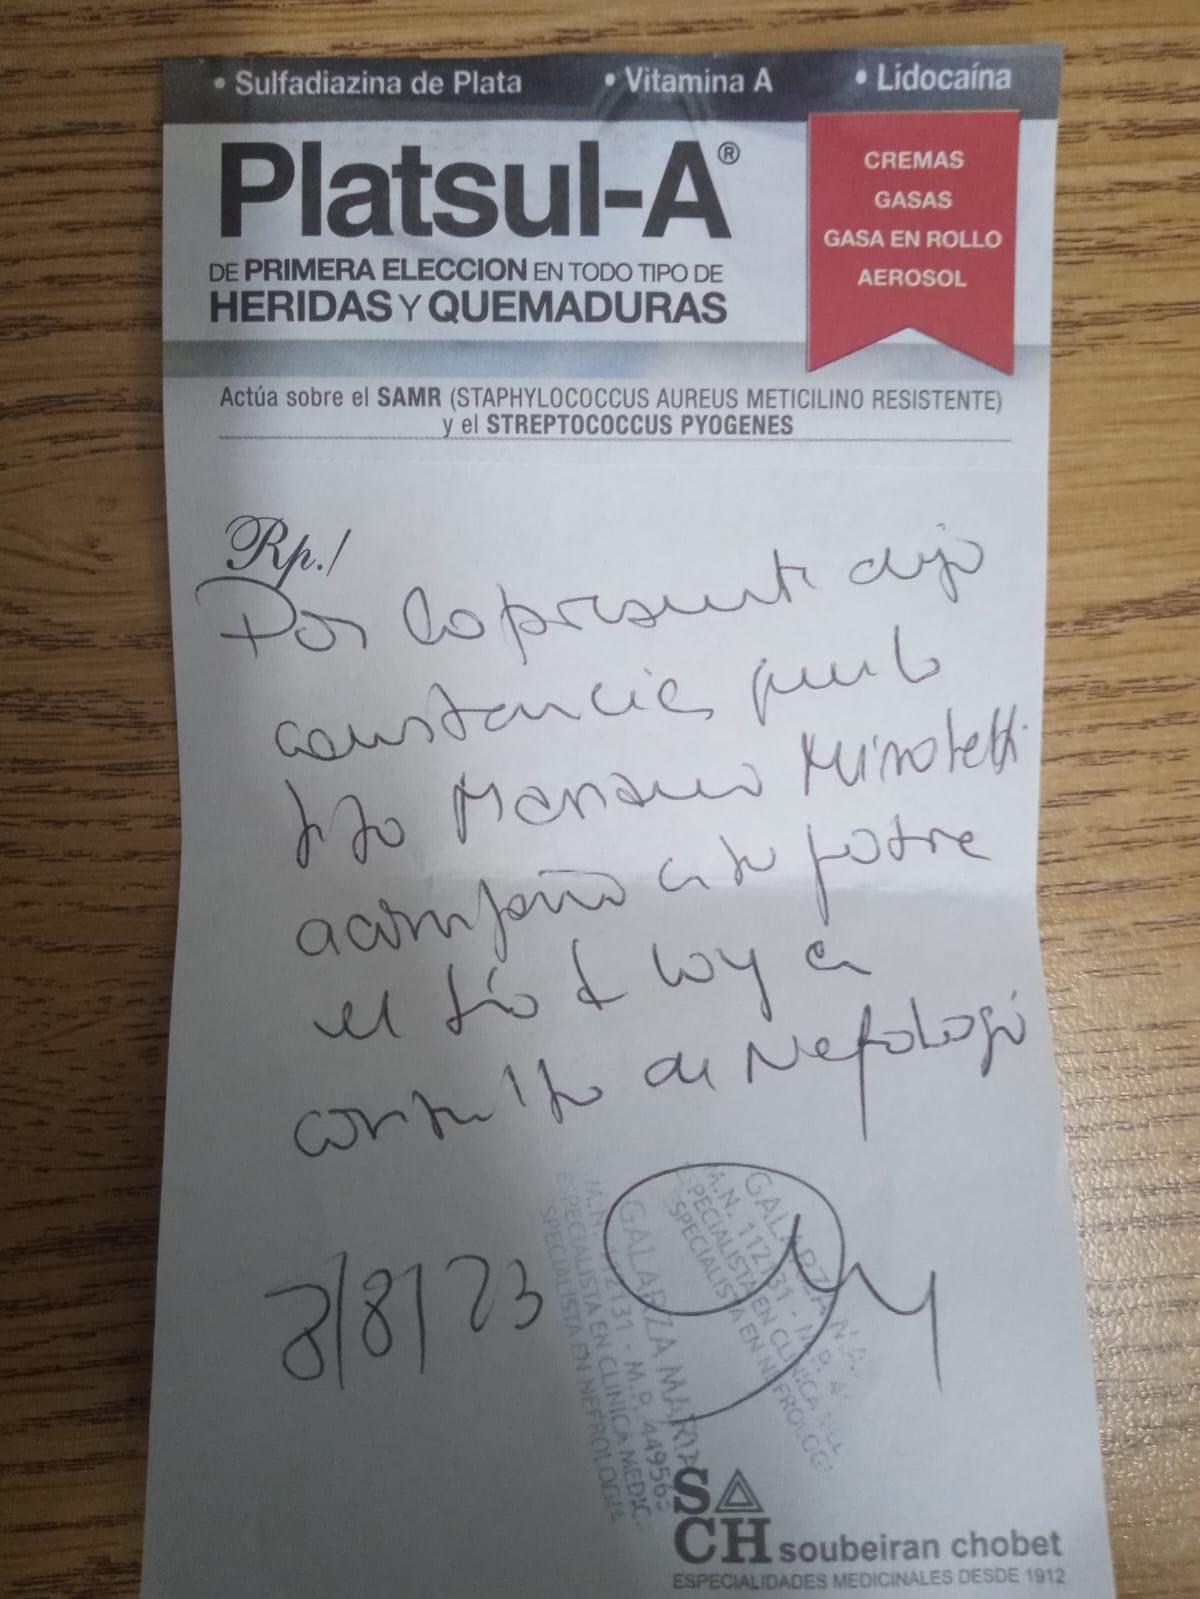 • Sulfadiazina de Plata • Vitamina A • Lidocaína
Platsul-A®
DE PRIMERA ELECCION EN TODO TIPO DE
HERIDAS Y QUEMADURAS
CREMAS
GASAS
GASA EN ROLLO
AEROSOL
Actúa sobre el SAMR (STAPHYLOCOCCUS AUREUS METICILINO RESISTENTE)
y el STREPTOCOCCUS PYOGENES
Rp./
Por la presente dejo
constancia que la
Mariano Minotetti
acompaño a su padre
el día de hoy a
consulta de Nefrologí
8/8/23
GALARZA MARIA
M.N. 112131 - M.P. 449563
ESPECIALISTA EN CLINICA MEDIC
ESPECIALISTA EN NEFROLOGIA
GALARZA
M.N. 112131 - M.P. 4
ESPECIALISTA EN CLINICA
ESPECIALISTA EN NEFROLOGI
SCH soubeiran chobet
ESPECIALIDADES MEDICINALES DESDE 1912